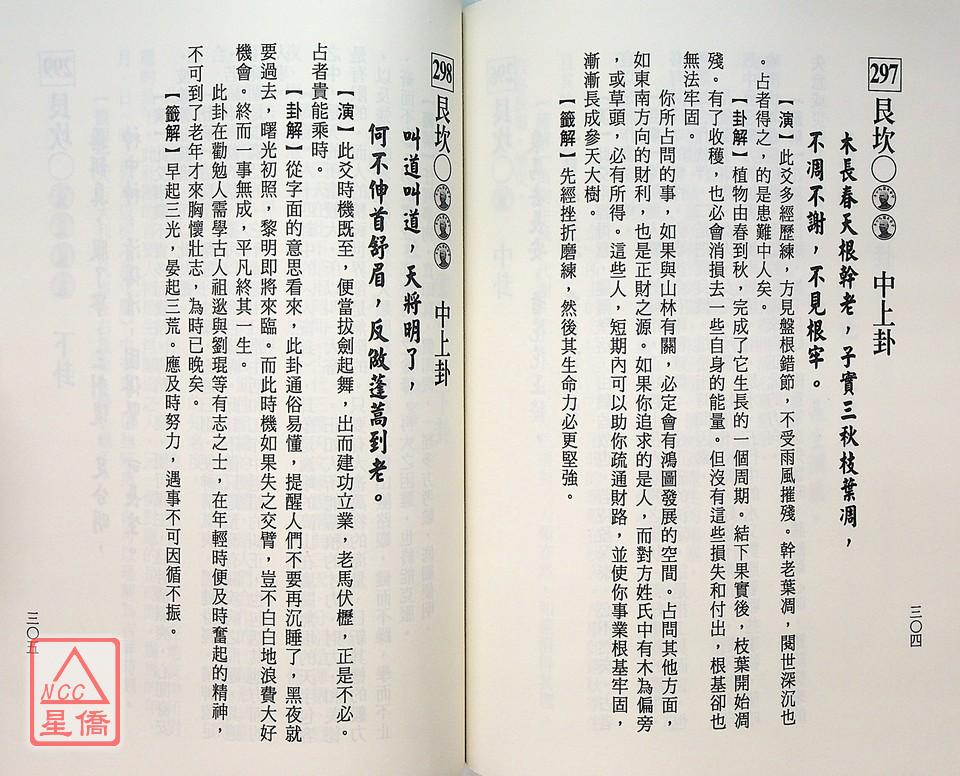 297 艮坎○ 中上卦
木長春天根幹老，子實三秋枝葉凋，
不凋不謝，不見根牢。
【演】此爻多經歷練，方見盤根錯節，不受雨風摧殘。幹老葉凋，閱世深沉也
。占者得之，的是患難中人矣。
【卦解】植物由春到秋，完成了它生長的一個周期。結下果實後，枝葉開始凋
殘。有了收穫，也必會消損去一些自身的能量。但沒有這些損失和付出，根基卻也
無法牢固。
你所占問的事，如果與山林有關，必定會有鴻圖發展的空間。占問其他方面，
如東南方向的財利，也是正財之源。如果你追求的是人，而對方姓氏中有木為偏旁
，或草頭，必有所得。這些人，短期內可以助你疏通財路，並使你事業根基牢固，
漸漸長成參天大樹。
【籤解】先經挫折磨練，然後其生命力必更堅強。
三〇四
298 艮坎○ 中上卦
叫道叫道，天將明了，
何不伸首舒眉，反做蓬蒿到老。
【演】此爻時機既至，便當拔劍起舞，出而建功立業，老馬伏櫪，正是不必。
占者貴能乘時。
【卦解】從字面的意思看來，此卦通俗易懂，提醒人們不要再沉睡了，黑夜就
要過去，曙光初照，黎明即將來臨。而此時機如果失之交臂，豈不白白地浪費大好
機會。終而一事無成，平凡終其一生。
此卦在勸勉人需學古人祖逖與劉琨等有志之士，在年輕時便及時奮起的精神，
不可到了老年才來胸懷壯志，為時已晚矣。
【籤解】早起三光，晏起三荒。應及時努力，遇事不可因循不振。
三〇五
NCC
星僑